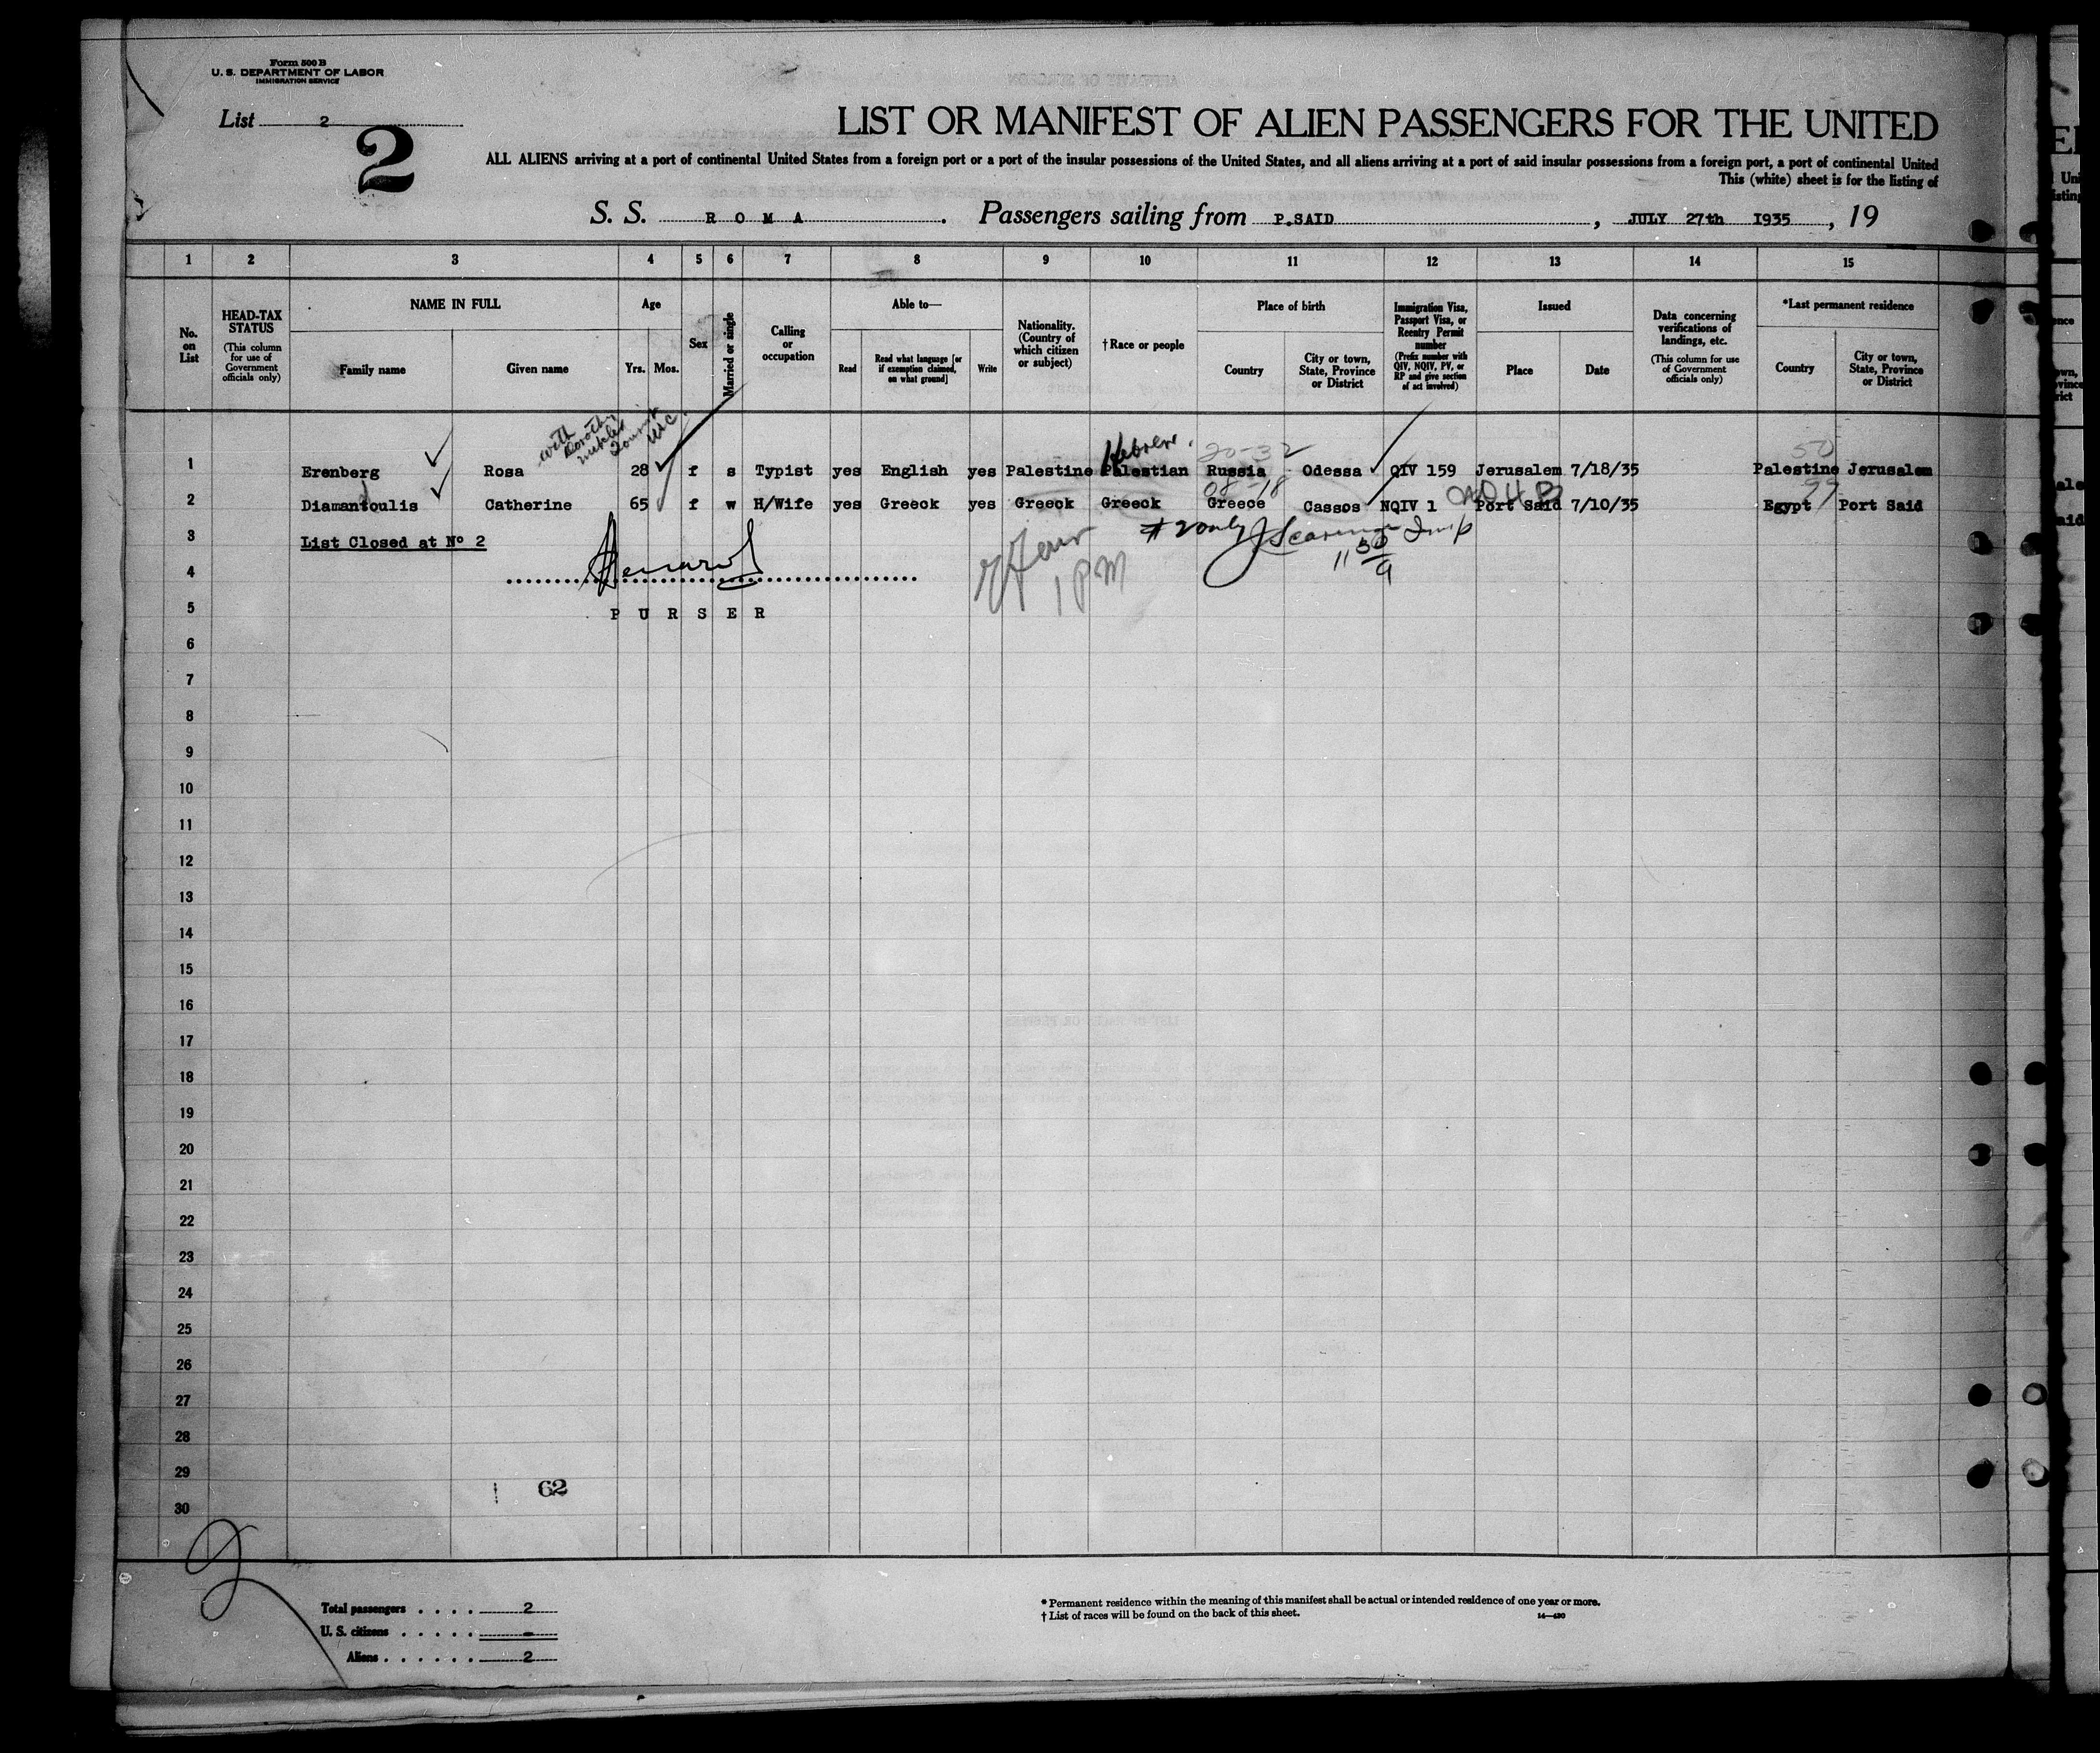 Form 500 B
U. S. DEPARTMENT OF LABOR
IMMIGRATION SERVICE
List 2
2
LIST OR MANIFEST OF ALIEN PASSENGERS FOR THE UNITED
ALL ALIENS arriving at a port of continental United States from a foreign port or a port of the insular possessions of the United States, and all aliens arriving at a port of said insular possessions from a foreign port, a port of continental United
This (white) sheet is for the listing of
S. S. R O M A . Passengers sailing from P.SAID , JULY 27th 1935 , 19
1 2 3 4 5 6 7 8 9 10 11 12 13 14 15
No. on List
HEAD-TAX STATUS (This column for use of Government officials only)
NAME IN FULL
Family name Given name
Age
Yrs. Mos.
Sex
Married or single
Calling or occupation
Able to—
Read Read what language [or if exemption claimed, on what ground] Write
Nationality. (Country of which citizen or subject)
† Race or people
Place of birth
Country City or town, State, Province or District
Immigration Visa, Passport Visa, or Reentry Permit number (Prefix number with QIV, NQIV, PV, or RP and give section of act involved)
Issued
Place Date
Data concerning verifications of landings, etc. (This column for use of Government officials only)
*Last permanent residence
Country City or town, State, Province or District
with Dorothy
Hebrew. 20-32 50
1 Erenberg Rosa 28 f s Typist yes English yes Palestine Palestian Russia Odessa QIV 159 Jerusalem 7/18/35 Palestine Jerusalem
08-18 99
2 Diamantoulis Catherine 65 f w H/Wife yes Greeck yes Greeck Greeck Greece Cassos NQIV 1 Port Said 7/10/35 Egypt Port Said
3 List Closed at Nº 2
# 2 only Insp
1130
9
1 PM
4
5 P U R S E R
6
7
8
9
10
11
12
13
14
15
16
17
18
19
20
21
22
23
24
25
26
27
28
29 62
30
2
Total passengers . . . . 2
U. S. citizens . . . . . -
Aliens . . . . . . 2
* Permanent residence within the meaning of this manifest shall be actual or intended residence of one year or more.
† List of races will be found on the back of this sheet. 14—430